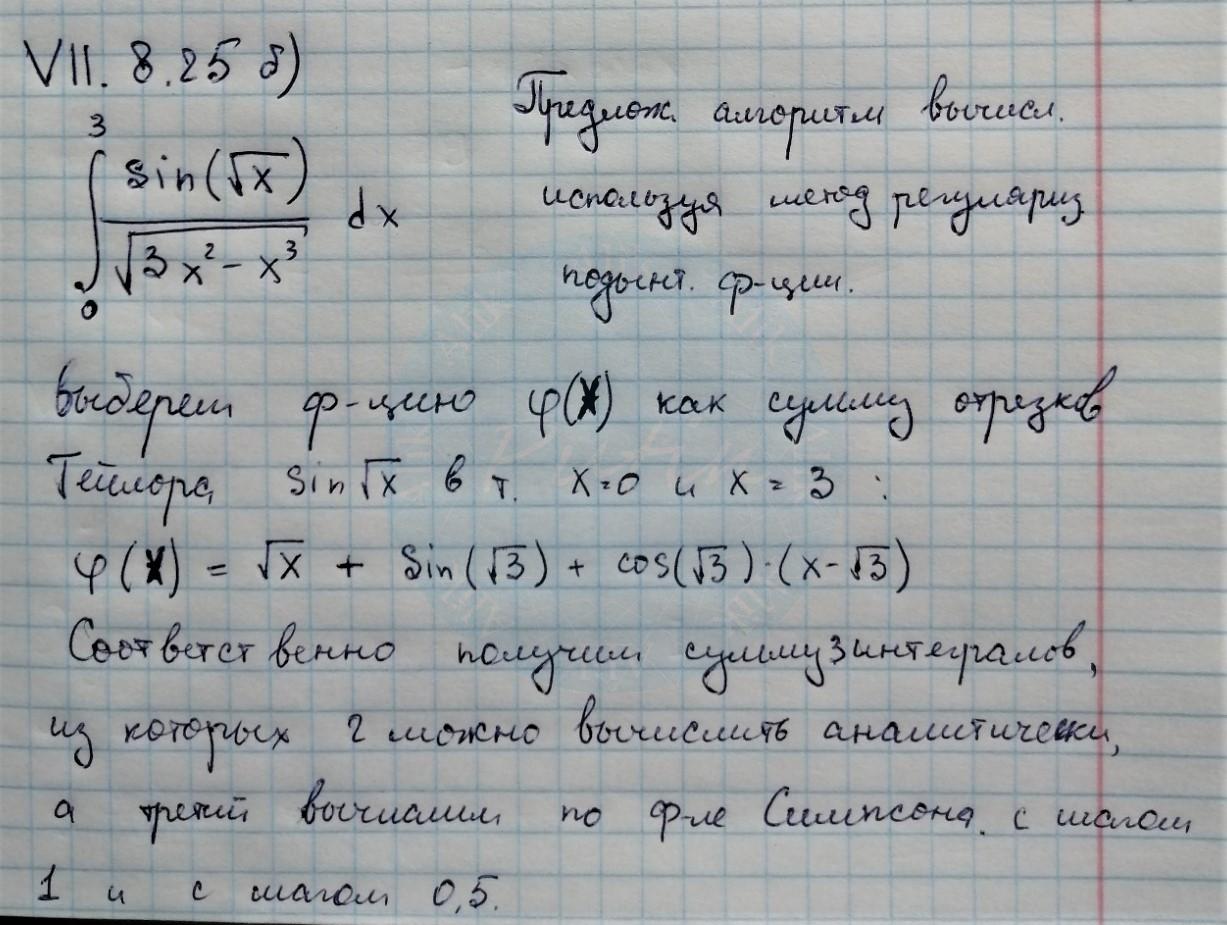 VII. 8.25 б)
3
∫ sin(√x) / √(3x² − x³) dx
0
Предлож. алгоритм вычисл.
используя метод регуляриз
подынт. ф-ции.
Выберем ф-цию φ(x) как сумму отрезков
Тейлора sin√x в т. x=0 и x = 3 :
φ(x) = √x + sin(√3) + cos(√3)·(x-√3)
Соответственно получим сумму 3 интегралов,
из которых 2 можно вычислить аналитически,
а третий вычислим по ф-ле Симпсона. с шагом
1 и с шагом 0,5.